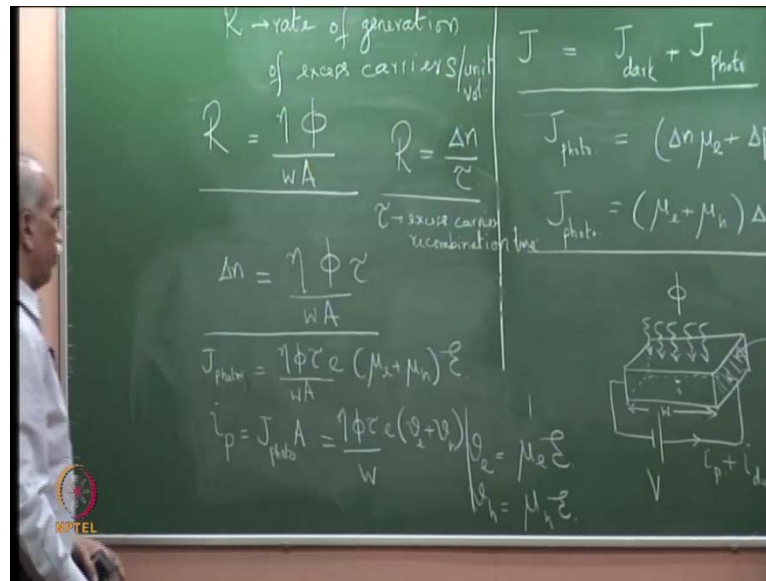 R → rate of generation
of excess carriers/unit vol
R = ηΦ / wA
R = Δn / τ
τ → excess carrier
recombination time
Δn = ηΦτ / wA
J photo = ηΦτe / wA (μe + μh) ξ
ip = J photo A = ηΦτ / w e(ϑe + ϑh)
ϑe = μe ξ
ϑh = μh ξ.
J = J dark + J photo
J photo. = (Δn μe + Δp
J photo. = (μe + μh) Δ
Φ
i
w
V
ip + i
NPTEL